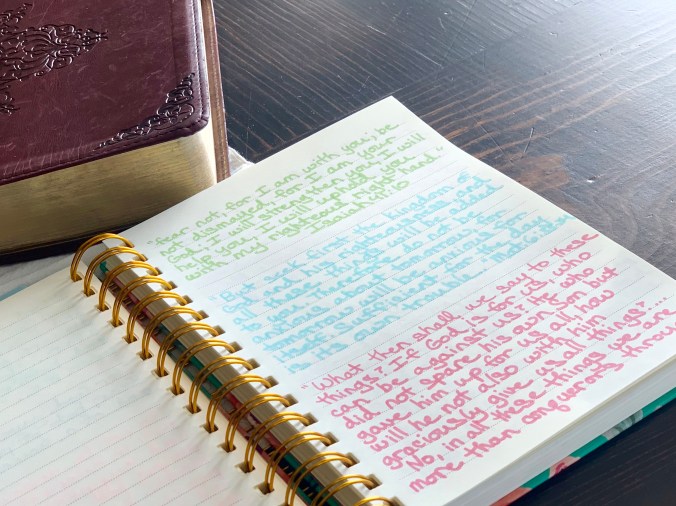 "fear not, for I am with you; be
not dismayed, for I am your
God; I will strengthen you, I will
help you, I will uphold you
with my righteous right hand."
Isaiah 41:10
"But seek first the kingdom of
God and his righteousness, and
all these things will be added
to you. Therefore do not be
anxious about tomorrow, for
tomorrow will be anxious for
itself. Sufficient for the day
is its own trouble." Matt 6:33-34
"What then shall we say to these
things? If God is for us, who
can be against us? He who
did not spare his own Son but
gave him up for us all, how
will he not also with him
graciously give us all things?"....
No, in all these things we are
more than conquerors through